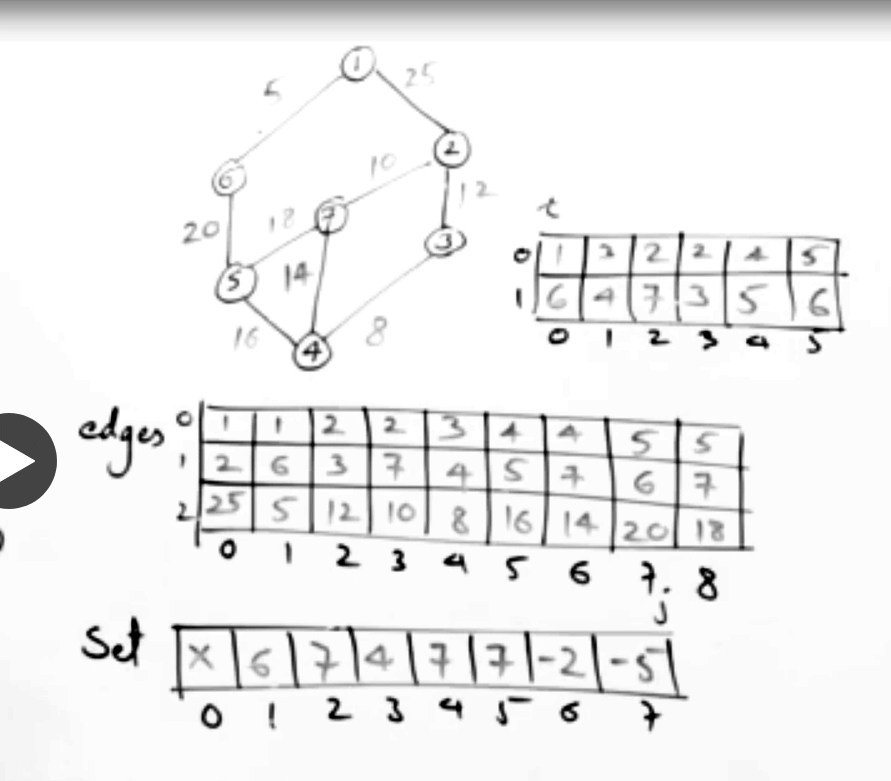 1
5
25
6
2
10
12
20
18
7
14
3
5
16
8
4
t
0 1 3 2 2 4 5
1 6 4 7 3 5 6
0 1 2 3 4 5
edges 0 1 1 2 2 3 4 4 5 5
1 2 6 3 7 4 5 7 6 7
2 25 5 12 10 8 16 14 20 18
0 1 2 3 4 5 6 7 8
j
Set X 6 7 4 7 7 -2 -5
0 1 2 3 4 5 6 7